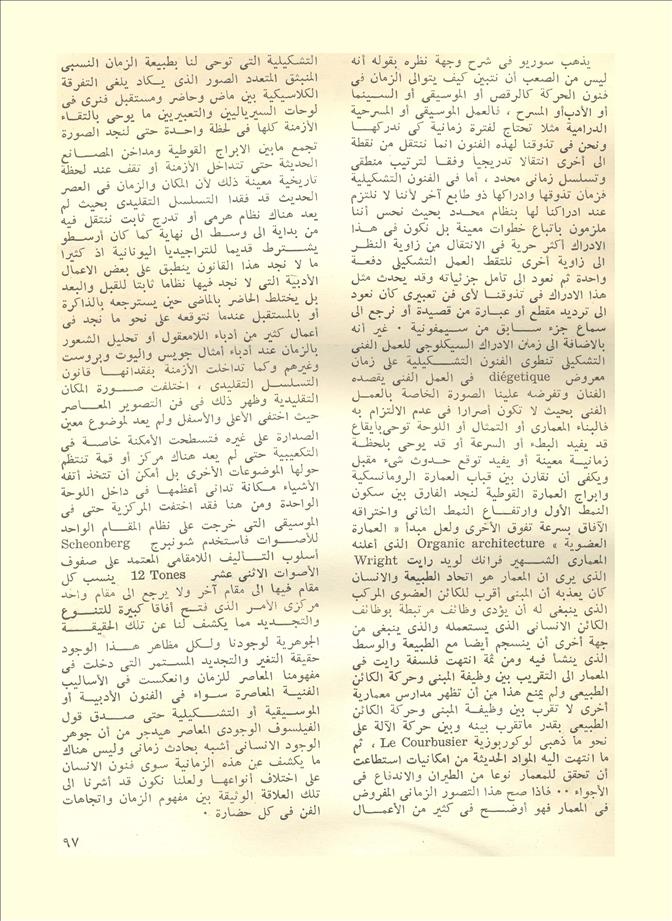 يذهب سوريو فى شرح وجهة نظره بقوله أنه
ليس من الصعب أن نتبين كيف يتوالى الزمان فى
فنون الحركة كالرقص أو الموسيقى أو السينما
أو الأدب أو المسرح ، فالعمل الموسيقى أو المسرحية
الدرامية مثلا تحتاج لفترة زمانية كى ندركها
ونحن فى تذوقنا لهذه الفنون انما ننتقل من نقطة
الى أخرى انتقالا تدريجيا وفقا لترتيب منطقى
وتسلسل زمانى محدد ، أما فى الفنون التشكيلية
فزمان تذوقها وادراكها ذو طابع آخر لأننا لا نلتزم
عند ادراكنا لها بنظام محدد بحيث نحس أننا
ملزمون باتباع خطوات معينة بل نكون فى هذا
الادراك أكثر حرية فى الانتقال من زاوية النظر
الى زاوية أخرى نلتقط العمل التشكيلى دفعة
واحدة ثم نعود الى تأمل جزئياته وقد يحدث مثل
هذا الادراك فى تذوقنا لأى فن تعبيرى كان نعود
الى ترديد مقطع أو عبارة من قصيدة أو نرجع الى
سماع جزء سابق من سيمفونية . غير أنه
بالاضافة الى زمان الادراك السيكلوجى للعمل الفنى
التشكيلى تنطوى الفنون التشكيلية على زمان
معروض diégetique فى العمل الفنى يقصده
الفنان وتفرضه علينا الصورة الخاصة بالعمل
الفنى بحيث لا تكون أصرارا فى عدم الالتزام به
فالبناء المعمارى أو التمثال أو اللوحة توحى بايقاع
قد يفيد البطء أو السرعة أو قد يوحى بلحظة
زمانية معينة أو يفيد توقع حدوث شىء مقبل
ويكفى أن نقارن بين قباب العمارة الرومانسكية
وابراج العمارة القوطية لنجد الفارق بين سكون
النمط الأول وارتفاع النمط الثانى واختراقه
الآفاق بسرعة تفوق الأخرى ولعل مبدأ « العمارة
العضوية » Organic architecture الذى أعلنه
المعمارى الشهير فرانك لويد رايت Wright
الذى يرى ان المعمار هو اتحاد الطبيعة والانسان
كان يعذبه أن المبنى أقرب للكائن العضوى المركب
الذى ينبغى له أن يؤدى وظائف مرتبطة بوظائف
الكائن الانسانى الذى يستعمله والذى ينبغى من
جهة أخرى أن ينسجم أيضا مع الطبيعة والوسط
الذى ينشأ فيه ومن ثمة انتهت فلسفة رايت فى
المعمار الى التقريب بين وظيفة المبنى وحركة الكائن
الطبيعى ولم يمنع هذا من أن تظهر مدارس معمارية
أخرى لا تقرب بين وظيفة المبنى وحركة الكائن
الطبيعى بقدر ماتقرب بينه وبين حركة الآلة على
نحو ما ذهبى لوكوربوزية Le Courbusier ، ثم
ما انتهت اليه المواد الحديثة من امكانيات استطاعت
أن تحقق للمعمار نوعا من الطيران والاندفاع فى
الأجواء .. فاذا صح هذا التصور الزمانى المفروض
فى المعمار فهو أوضح فى كثير من الأعمال
التشكيلية التى توحى لنا بطبيعة الزمان النسبى
المنبثق المتعدد الصور الذى يكاد يلغى التفرقة
الكلاسيكية بين ماض وحاضر ومستقبل فنرى فى
لوحات السيرياليين والتعبيريين ما يوحى بالتقاء
الأزمنة كلها فى لحظة واحدة حتى لنجد الصورة
تجمع مابين الابراج القوطية ومداخن المصانع
الحديثة حتى تتداخل الأزمنة أو تقف عند لحظة
تاريخية معينة ذلك لأن المكان والزمان فى العصر
الحديث قد فقدا التسلسل التقليدى بحيث لم
يعد هناك نظام هرمى أو تدرج ثابت ننتقل فيه
من بداية الى وسط الى نهاية كما كان أرسطو
يشترط قديما للتراجيديا اليونانية اذ كثيرا
ما لا نجد هذا القانون ينطبق على بعض الاعمال
الأدبية التى لا نجد فيها نظاما ثابتا للقبل والبعد
بل يختلط الحاضر بالماضى حين يسترجعه بالذاكرة
أو بالمستقبل عندما نتوقعه على نحو ما نجد فى
أعمال كثير من أدباء اللامعقول أو تحليل الشعور
بالزمان عند أدباء أمثال جويس واليوت وبروست
وغيرهم وكما تداخلت الأزمنة بفقدانها قانون
التسلسل التقليدى ، اختلفت صورة المكان
التقليدية وظهر ذلك فى فن التصوير المعاصر
حيث اختفى الأعلى والأسفل ولم يعد لموضوع معين
الصدارة على غيره فتسطحت الأمكنة خاصة فى
التكعيبية حتى لم يعد هناك مركز أو قمة تنتظم
حولها الموضوعات الأخرى بل أمكن أن تتخذ أتفه
الأشياء مكانة تدانى أعظمها فى داخل اللوحة
الواحدة ومن هنا فقد اختفت المركزية حتى فى
الموسيقى التى خرجت على نظام المقام الواحد
للأصوات فاستخدم شونبرج Scheonberg
أسلوب التأليف اللامقامى المعتمد على صفوف
الأصوات الاثنى عشر 12 Tones ينسب كل
مقام فيها الى مقام آخر ولا يرجع الى مقام واحد
مركزى الأمر الذى فتح آفاقا كبيرة للتنوع
والتجديد مما يكشف لنا عن تلك الحقيقة
الجوهرية لوجودنا ولكل مظاهر هذا الوجود
حقيقة التغير والتجديد المستمر التى دخلت فى
مفهومنا المعاصر للزمان وانعكست فى الأساليب
الفنية المعاصرة سواء فى الفنون الأدبية أو
الموسيقية أو التشكيلية حتى صدق قول
الفيلسوف الوجودى المعاصر هيدجر من أن جوهر
الوجود الانسانى أشبه بحادث زمانى وليس هناك
ما يكشف عن هذه الزمانية سوى فنون الانسان
على اختلاف أنواعها ولعلنا نكون قد أشرنا الى
تلك العلاقة الوثيقة بين مفهوم الزمان واتجاهات
الفن فى كل حضارة .
٩٧